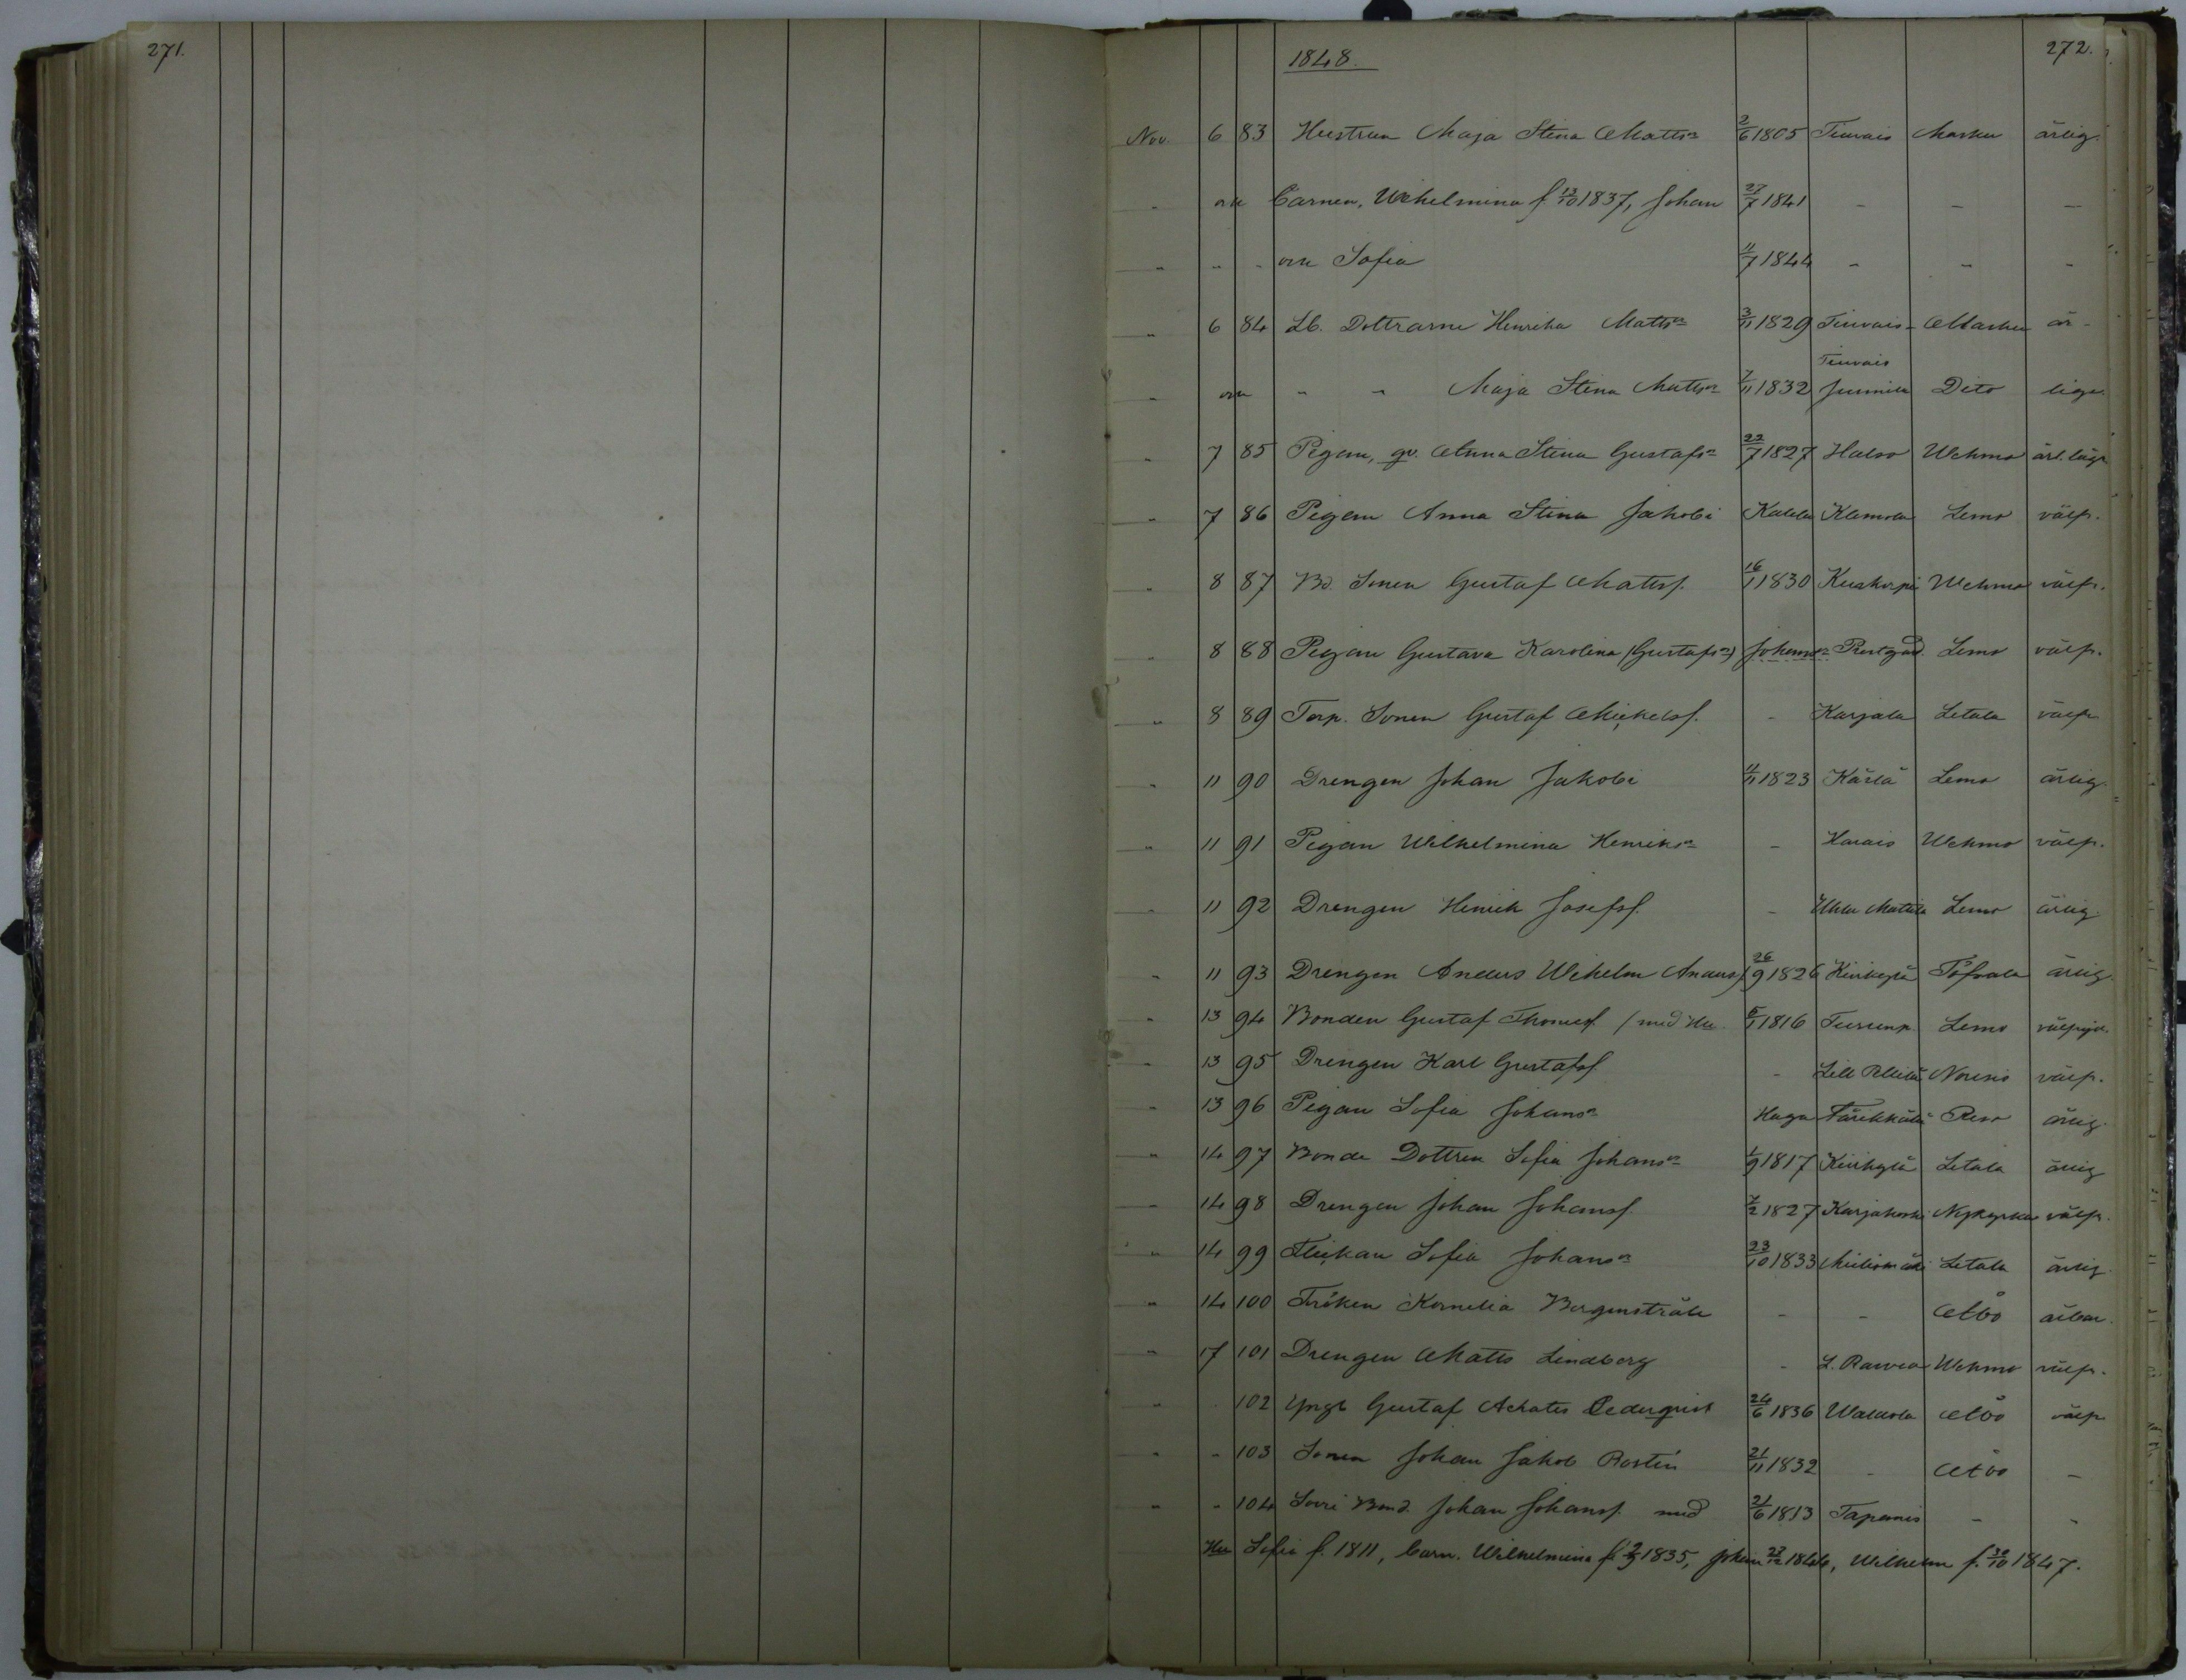 271.
272.
1848.
Nov. 6 83 Hustrun Maja Stina Matts 2/6 1805 Tiuvais Masku ärlig.
" o. barnen, Wilhelmina f. 13/10 1837, Johan 27/7 1841 - - -
" " " Sofia 11/7 1844 - - -
" 6 84 Lb. Dottrarne Henrika Matts 3/11 1829 Tiuvais Masku är-
Tiuvais
" " " Maja Stina Matts 7/11 1832 Junnila Dito liga.
" 7 85 Pigan, qv. Anna Stina Gustafs 22/7 1827 Halso Wehmo ärl.
" 7 86 Pigan Anna Stina Jakobi Kalela Klemola Lemo välfr.
" 8 87 Bd. Sonen Gustaf Mattsf. 16/1 1830 Wehmo välfr.
" 8 88 Pigan Gustava Karolina (Gustafs) Johans Prestgård. Lemo välfr.
" 8 89 Torp. Sonen Gustaf Mickelsf. - Karjala Letala välfr.
" 11 90 Drengen Johan Jakobi 11/11 1823 Kärlä Lemo ärlig
" 11 91 Pigan Wilhelmina Henriks - Harais Wehmo välfr.
" 11 92 Drengen Henrik Josefsf. - Mattila Lemo ärlig
" 11 93 Drengen Anders Wilhelm Andersf. 26/9 1826 Kirkkylä Töfsala ärlig
" 13 94 Bonden Gustaf Thomasf. (med Hu. 5/1 1816 Lemo
" 13 95 Drengen Karl Gustafsf - Lill Nousis välfr.
" 13 96 Pigan Sofia Johans Haga Färikkälä Reso ärlig.
" 14 97 Bonde Dottren Sofia Johans 1/9 1817 Kirikylä Letala ärlig
" 14 98 Drengen Johan Johansf. 7/2 1827 Karjakoski Nykyrka välfr.
" 14 99 Flickan Sofia Johans 23/10 1833 Letala ärlig
" 14 100 Fröken Kornelia Bergenstråle - - Åbo ärbar.
" 17 101 Drengen Matts Lindberg - L. Raivea Wehmo välfr.
" 102 Yngl Gustaf Achates Cederqvist 24/6 1836 Walkola Åbo välfr
" " 103 Sonen Johan Jakob Rostén 21/11 1832 - Åbo -
" " 104 Bond. Johan Johansf. med 21/6 1813 Tapanis - -
Hu Sofia f. 1811, barn. Wilhelmina f. 2/9 1835, Johan 27/12 1844, Wilhelm f. 30/10 1847.